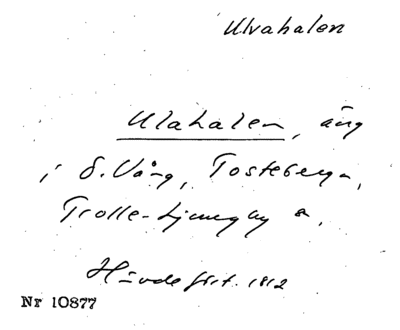 Ulvahalen
Ulahalen, äng
i S. Vång, Tosteberga,
Trolle-Ljungby s.
Hävdefört. 1812
Nr 10877